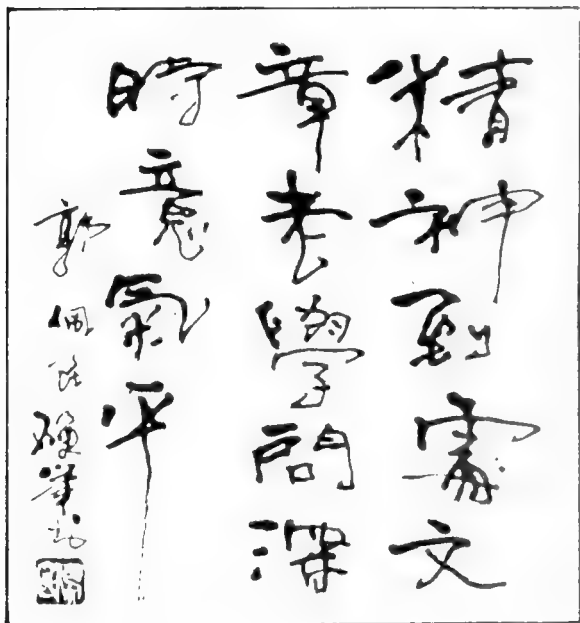 精神到處文
章老學問深
時意氣平
郭佩
硬筆書